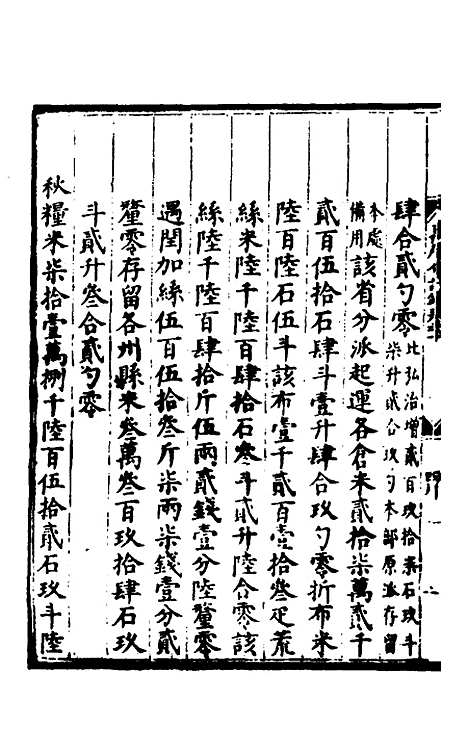 肆合貳勺零比弘治增貳百玖拾柒石玖斗
柒升貳合玖勺本部原派存留
本處
備用該省分派起運各倉米貳拾柒萬貳千
貳百伍拾石肆斗壹升肆合玖勺零折布米
陸百陸石伍斗該布壹千貳百壹拾叄疋荒
絲米陸千陸百肆拾石叄斗貳升陸合零該
絲陸千陸百肆拾斤伍兩貳錢壹分陸釐零
遇閏加絲伍百伍拾叄斤柒兩柒錢壹分貳
釐零存留各州縣米叄萬叄百玖拾肆石玖
斗貳升叄合貳勺零
秋糧米柒拾壹萬捌千陸百伍拾貳石玖斗陸